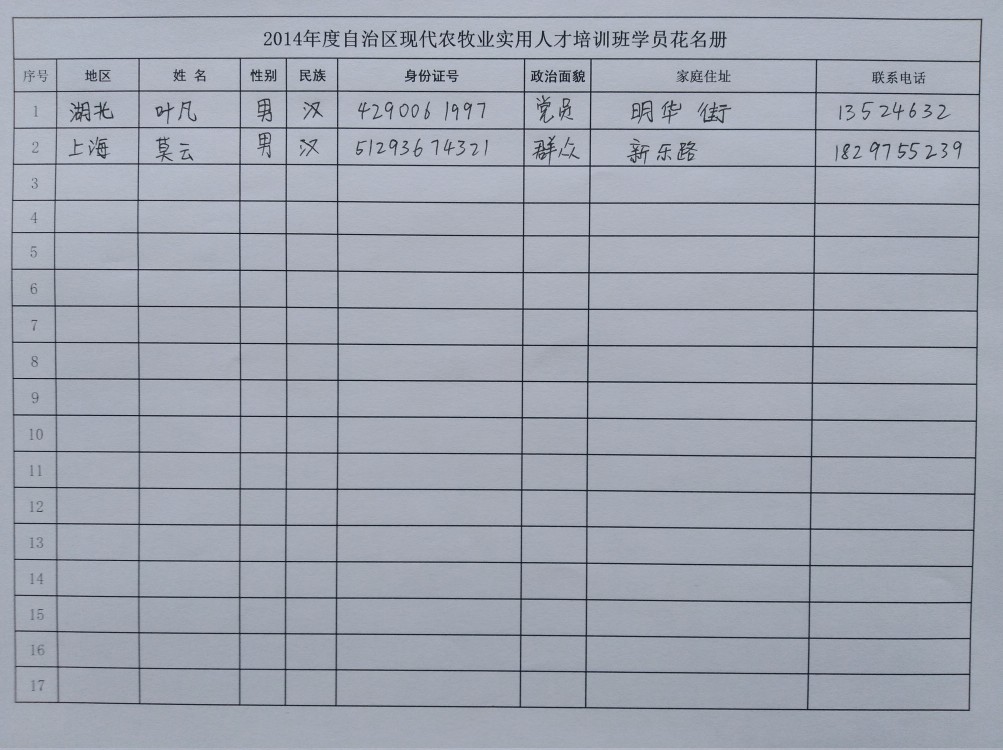 2014年度自治区现代农牧业实用人才培训班学员花名册
序号 地区 姓 名 性别 民族 身份证号 政治面貌 家庭住址 联系电话
1 湖北 叶凡 男 汉 429006 1997 党员 明华街 13524632
2 上海 莫云 男 汉 51293674321 群众 新乐路 18297555239
3
4
5
6
7
8
9
10
11
12
13
14
15
16
17